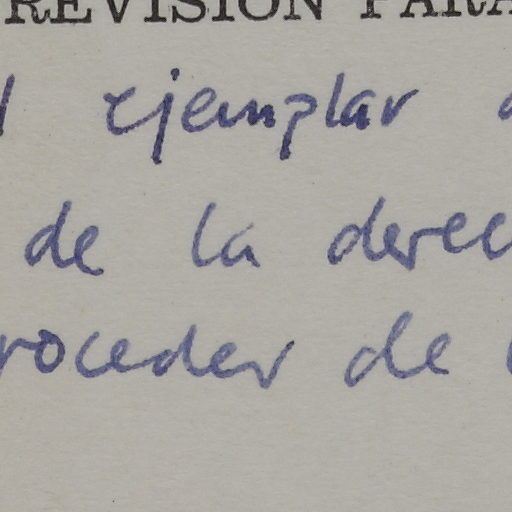 REVISION PARA
l ejemplar
de la derec
roceder de